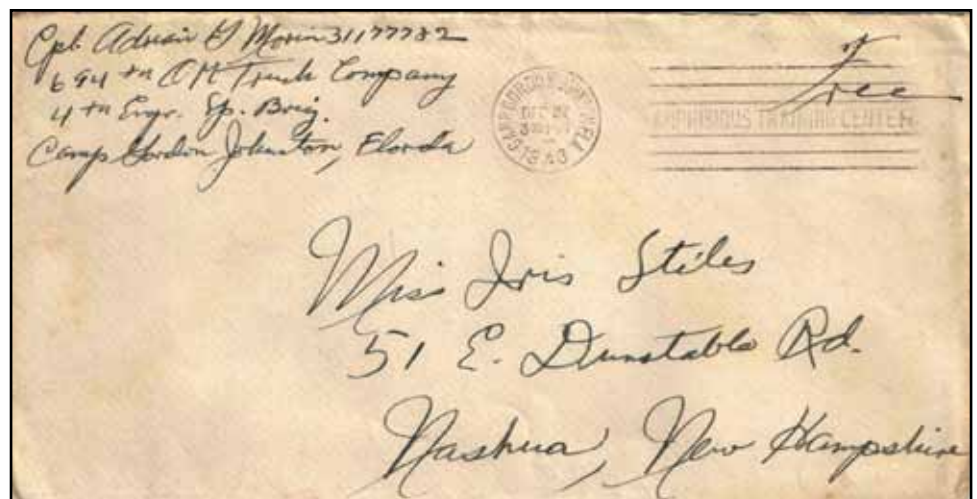 Cpl. Adrian G Morin 31177782
694th QM Truck Company
4th Engr. Sp. Brig.
Camp Gordon Johnston, Florida
CAMP GORDON JOHNSTON, FLA.
DEC
1943
Free
AMPHIBIOUS TRAINING CENTER
Miss Iris Stiles
51 E. Dunstable Rd.
Nashua, New Hampshire